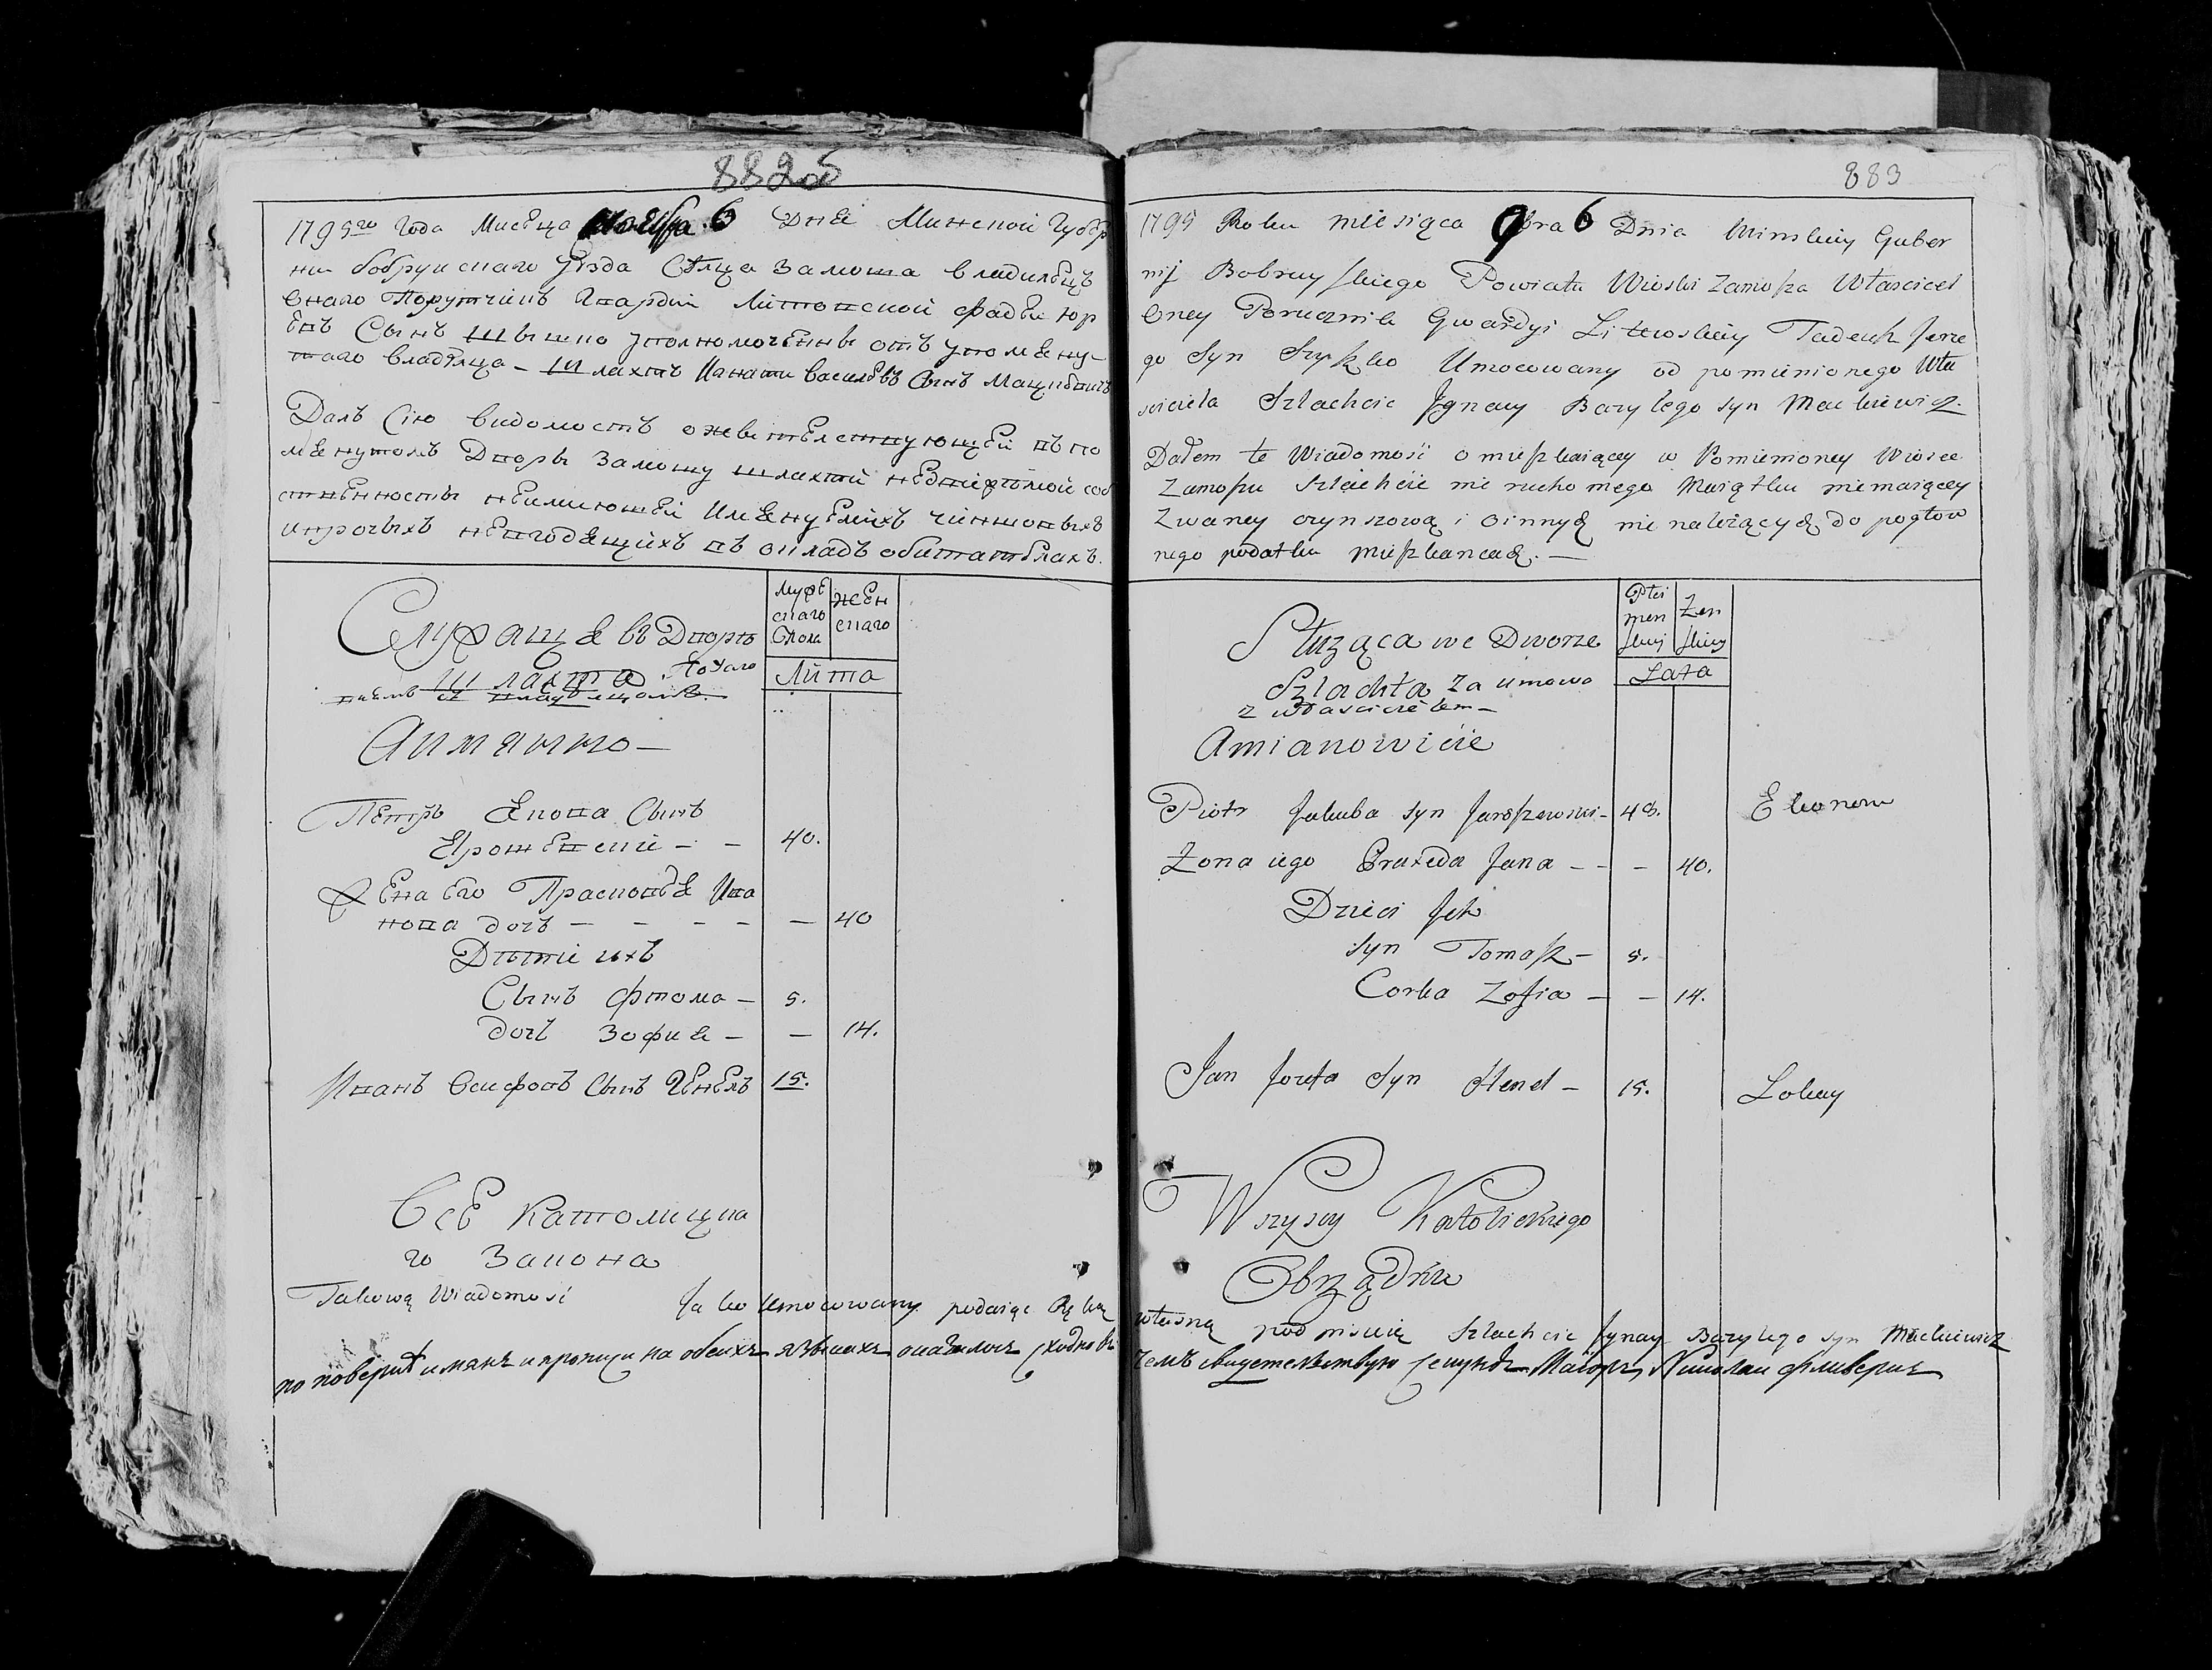 882 об
1795го Года Мисеца Ноября 6 Дня Минской Губер
ни бобруйскаго Уезда Сельца Замоша владилецъ
Онаго Порутчикъ Гвардии Литовской Фадей Юр
евъ Сынъ Шышко уполномоченны отъ упомену-
таго владельца - Шлахтичъ Игнати Василевъ Сынъ Мацкевичъ
Далъ Сию видомость о жительствующей въ по
менутомъ Дворы Замошу шлахтий недвижимой соб
ственносты неимиющей Именуемихъ чиншовыхъ
и прочыхъ неподлежащихъ въ окладъ обитателахъ.
Служащя въ Дворе
Шлахта
Мужескаго Пола
женскаго
Лита
Аимянно -
Петръ Якова Сынъ
Ярошевский - - 40.
Жена Его Прасковья Ива
нова дочъ - - - - - 40
Дети ихъ
Сынъ Фтома - 5.
дочъ Зофия - - 14.
Иванъ Осифовъ Сынъ Генель 15.
Всё католицка
го Закона
883
1795 Roku miesiąca 9bra 6 Dnia Minskiey Guber
nij Bobruyskiego Powiatu Wioski Zamosza Własciciel
Oney Porucznik Gwardyi Litewskiey Tadeusz Jerze
go Syn Szyszko Umocowany od pomienionego Wła
sciciela Szlachcic Jgnacy Bazylego syn Mackiewicz.
Dałem te Wiadomość o mieszkaiącey w Pomienioney Wiosce
Zamoszu Szlachcie nie ruchomego Maiątku niemaiącey
Zwaney czynszową i o innych nie należących do pogłow
nego podatku mieszkancach. -
Służąca we Dworze
Szlachta za umowo
z własciciélem -
Płci męnskiey
Zenskiey
Lata
Amianowicie
Piotr Jakuba syn Jaroszewski - 40. Ekonom
Zona iego Praxeda Jana - - - 40.
Dzieci Jch
syn Tomasz - 5.
Corka Zofia - - 14.
Jan Jozefa Syn Henel - 15. Lokay
Wszyscy Katolickiego
Obrządku
Takową Wiadomość Jako Umocowany podaiąc Ręką własną podpisuię Szlachcic Jgnacy Bazylego syn Mackiewicz
по поверке имянъ и прописи на обеихъ языкахъ оказалось сходно въ чемъ свидетелствую секундъ Маиоръ Николаи